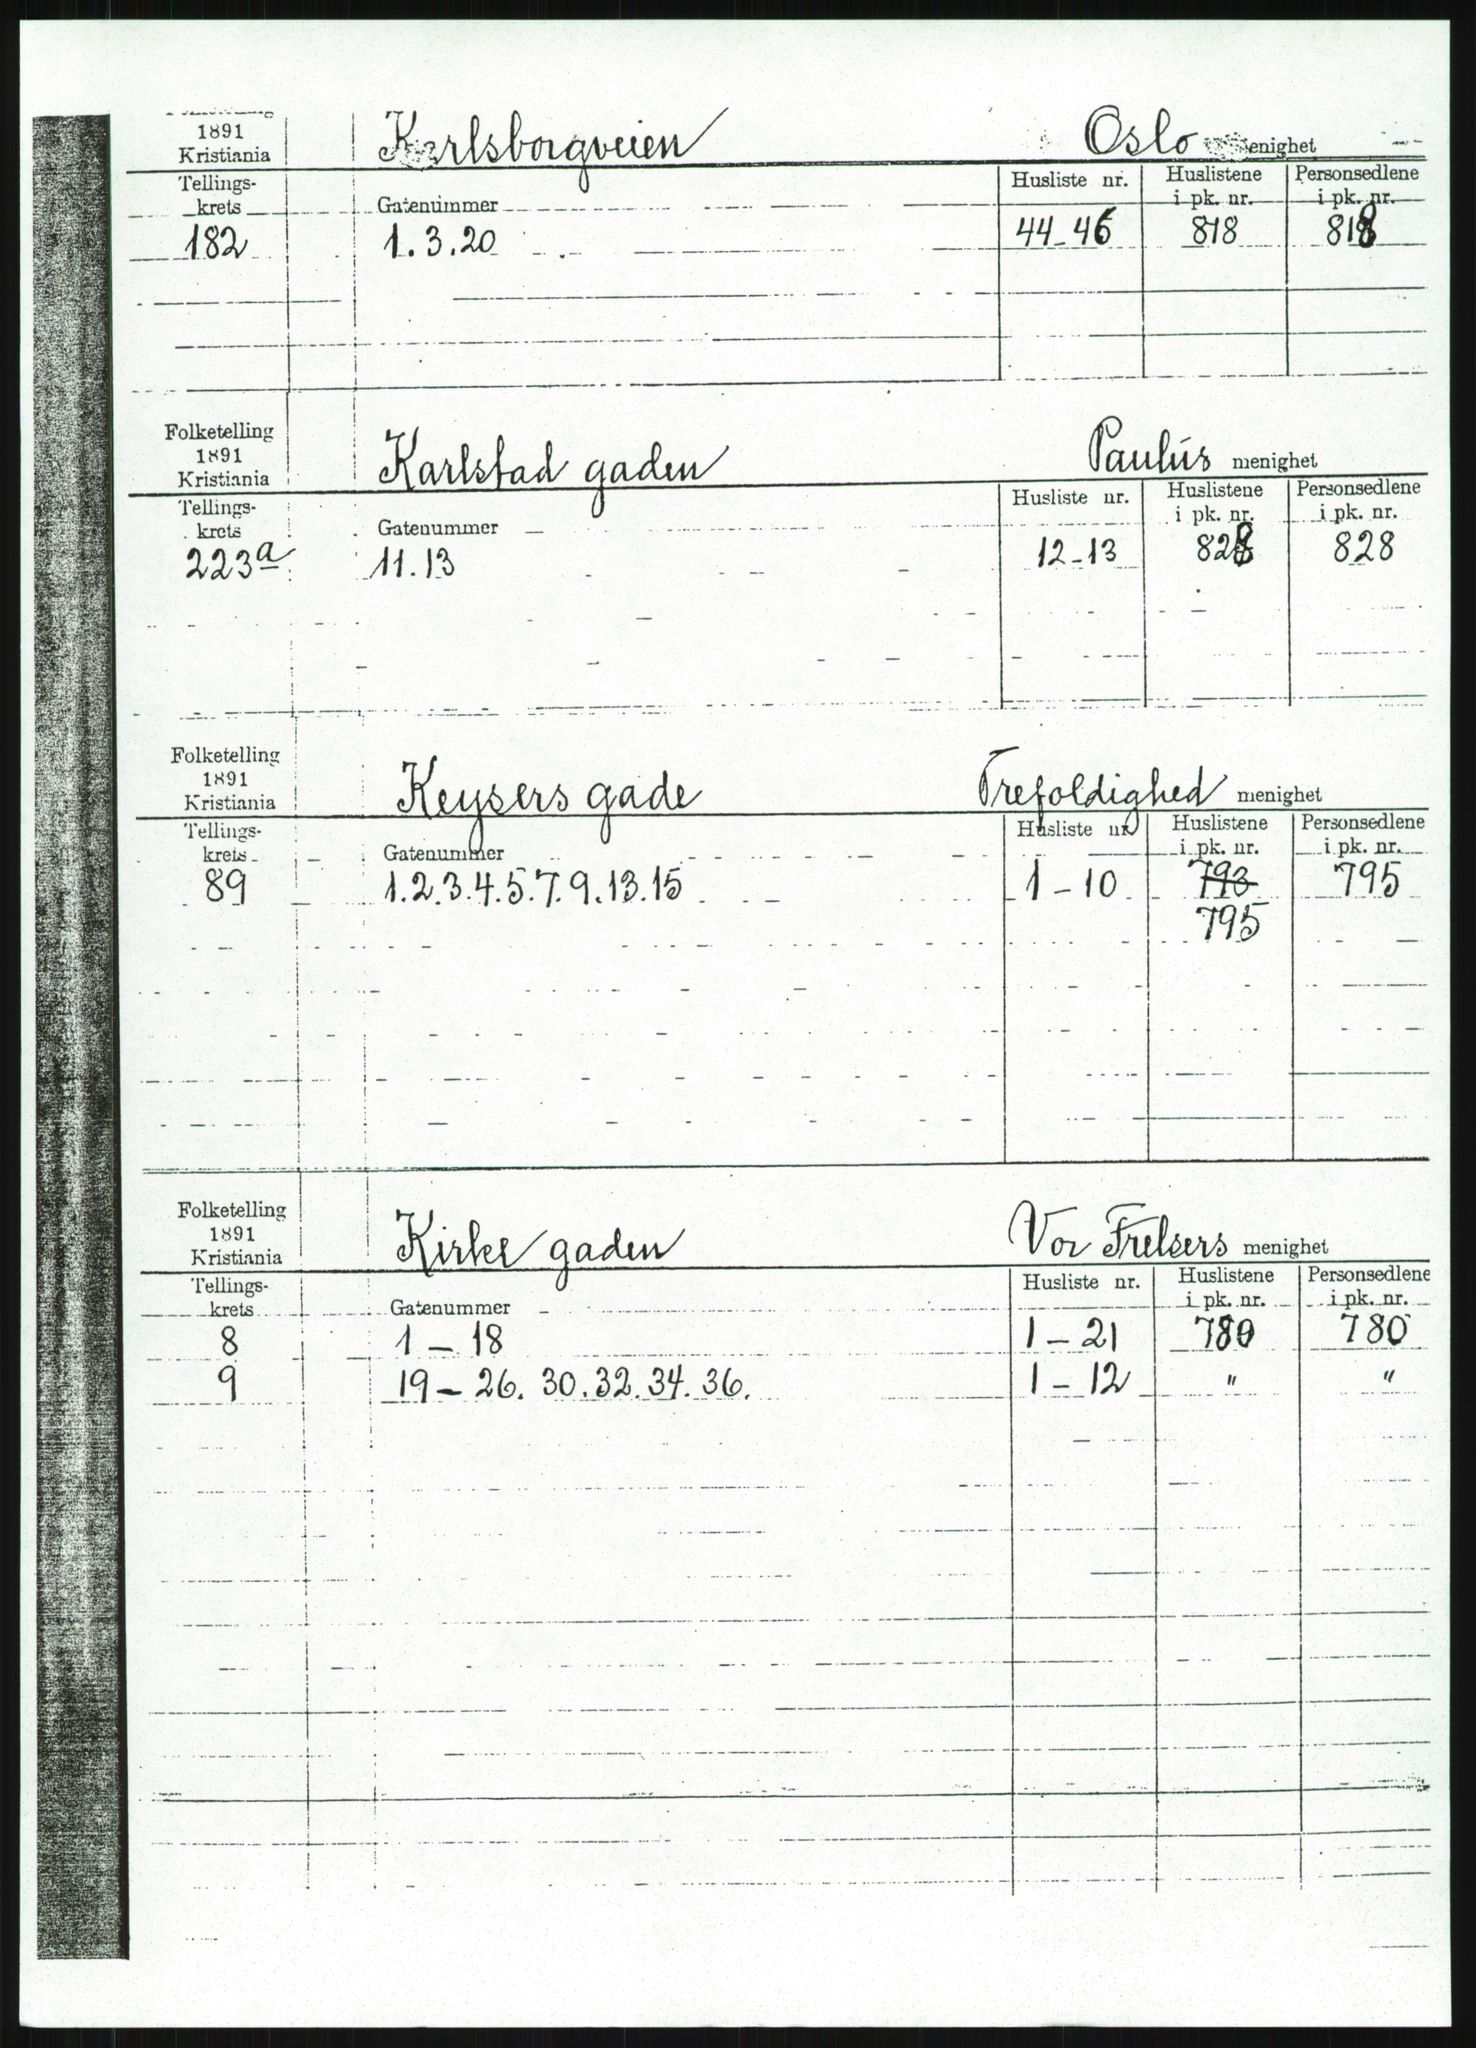 1891
Kristiania
Karlsborgveien
Oslo menighet
Tellings-
krets
Gatenummer
Husliste nr.
Huslistene
i pk. nr.
Personsedlene
i pk. nr.
182
1.3.20
44-46
818
818
Folketelling
1891
Kristiania
Karlstad gaden
Paulus menighet
Tellings-
krets
Gatenummer
Husliste nr.
Huslistene
i pk. nr.
Personsedlene
i pk. nr.
223a
11.13
12-13
828
828
Folketelling
1891
Kristiania
Keysers gade
Trefoldighed menighet
Tellings-
krets
Gatenummer
Husliste nr.
Huslistene
i pk. nr.
Personsedlene
i pk. nr.
89
1.2.3.4.5.7.9.13.15
1-10
793
795
795
Folketelling
1891
Kristiania
Kirke gaden
Vor Frelsers menighet
Tellings-
krets
Gatenummer
Husliste nr.
Huslistene
i pk. nr.
Personsedlene
i pk. nr.
8
1-18
1-21
780
780
9
19-26. 30.32.34.36.
1-12
"
"